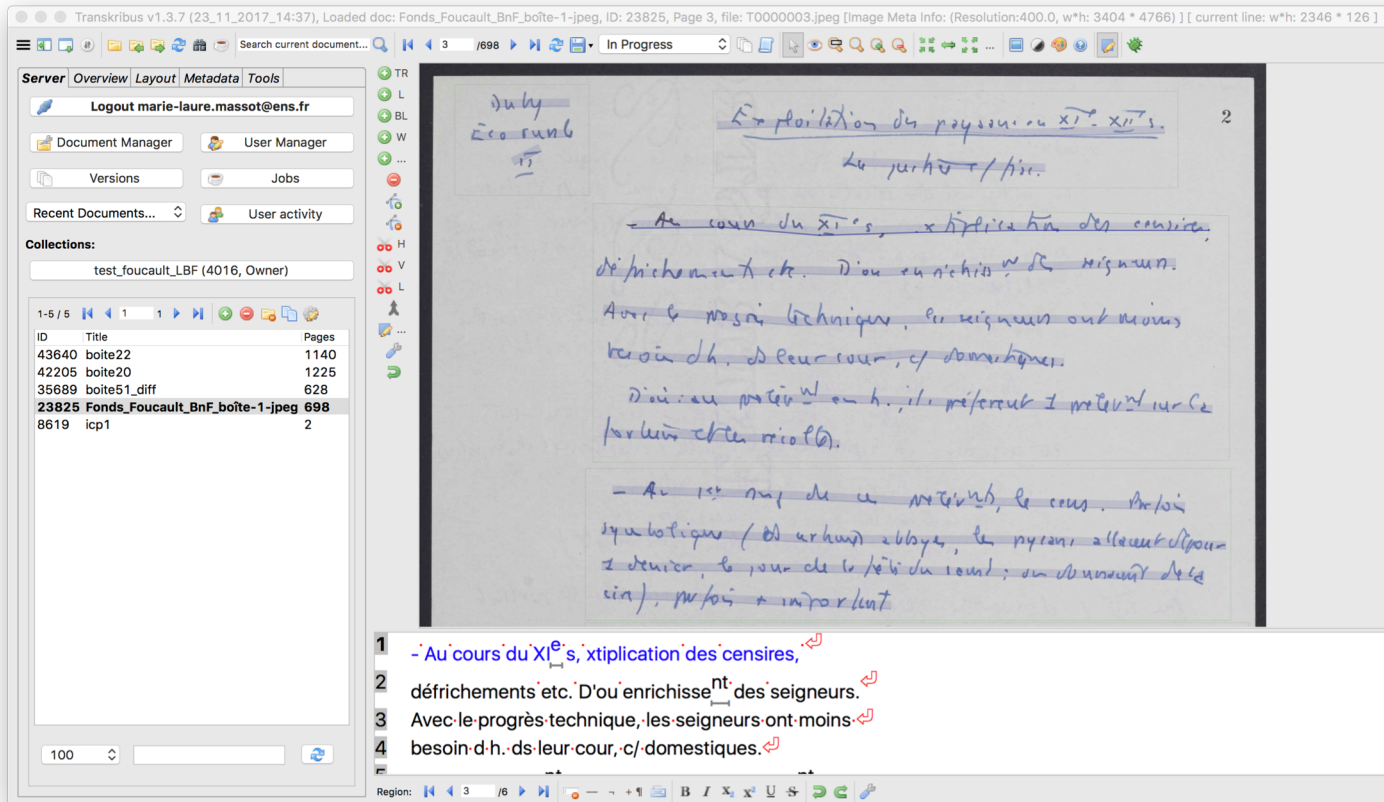 Transkribus v1.3.7 (23_11_2017_14:37), Loaded doc: Fonds_Foucault_BnF_boîte-1-jpeg, ID: 23825, Page 3, file: T0000003.jpeg [Image Meta Info: (Resolution:400.0, w*h: 3404 * 4766) ] [ current line: w*h: 2346 * 126 ]
Search current document...
3 /698
In Progress
Server Overview Layout Metadata Tools
Logout marie-laure.massot@ens.fr
Document Manager User Manager
Versions Jobs
Recent Documents... User activity
Collections:
test_foucault_LBF (4016, Owner)
1-5 / 5 1 1
ID Title Pages
43640 boite22 1140
42205 boite20 1225
35689 boite51_diff 628
23825 Fonds_Foucault_BnF_boîte-1-jpeg 698
8619 icp1 2
100
TR
L
BL
W
...
H
V
L
...
Duby
Eco rurale
II
2
Exploitation du paysan au XIe-XIIe s.
La justice / fisc.
- Au cours du XIe s, xtiplication des censires,
défrichements etc. D'ou enrichissent des seigneurs.
Avec le progrès technique, les seigneurs ont moins
besoin d h. ds leur cour, c/ domestiques.
D'où : au prélèvnt en h., ils préfèrent 1 prélèvnt sur la
et les récoltes.
- Au 1er rang de ces prélèvnts, le cens. Parfois
symbolique ( abbayes, les paysans allaient déposer
1 denier, le jour de la fête du saint ; ou donnaient de la
cire), parfois + important
1 - Au cours du XIe s, xtiplication des censires,
2 défrichements etc. D'ou enrichissent des seigneurs.
3 Avec le progrès technique, les seigneurs ont moins
4 besoin d h. ds leur cour, c/ domestiques.
Region: 3 /6 B I X₂ X² U S